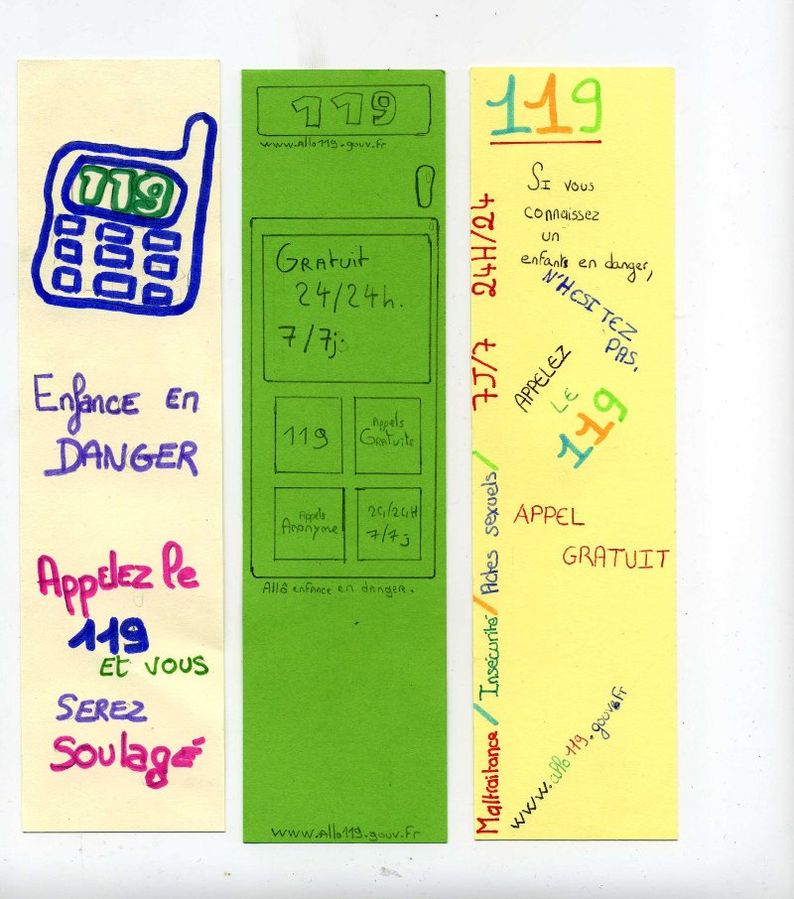 119
Enfance en
DANGER
Appelez le
119
Et vous
SEREZ
Soulagé
119
www.Allo119.gouv.fr
Gratuit
24/24h.
7/7j
119
Appels
Gratuits
Appels
Anonyme
24/24H
7/7j
Allô enfance en danger.
www.Allo119.gouv.fr
119
Si vous
connaissez
un
enfants en danger,
N'HESITEZ
PAS,
APPELEZ
LE
119
APPEL
GRATUIT
www.allo119.gouv.fr
Maltraitance / Insécurité / Actes sexuels / 7J/7 24H/24